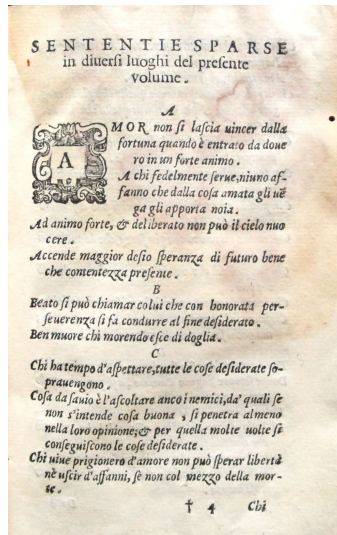 SENTENTIE SPARSE
in diuersi luoghi del presente
volume.
A
AMOR non si lascia uincer dalla
fortuna quando è entrato da doue
ro in un forte animo.
A chi fedelmente serue, niuno af-
fanno che dalla cosa amata gli uẽ
ga gli apporta noia.
Ad animo forte, & deliberato non può il cielo nuo
cere.
Accende maggior desio speranza di futuro bene
che contentezza presente.
B
Beato si può chiamar colui che con honorata per-
seuerenza si fa condurre al fine desiderato.
Ben muore chi morendo esce di doglia.
C
Chi ha tempo d'aspettare, tutte le cose desiderate so-
prauengono.
Cosa da sauio è l'ascoltare anco i nemici, da' quali se
non s'intende cosa buona, si penetra almeno
nella loro opinione; & per quella molte uolte si
conseguiscono le cose desiderate.
Chi uiue prigionero d'amore non può sperar libertà
nè uscir d'affanni, se non col mezzo della mor-
te.
† 4 Chi